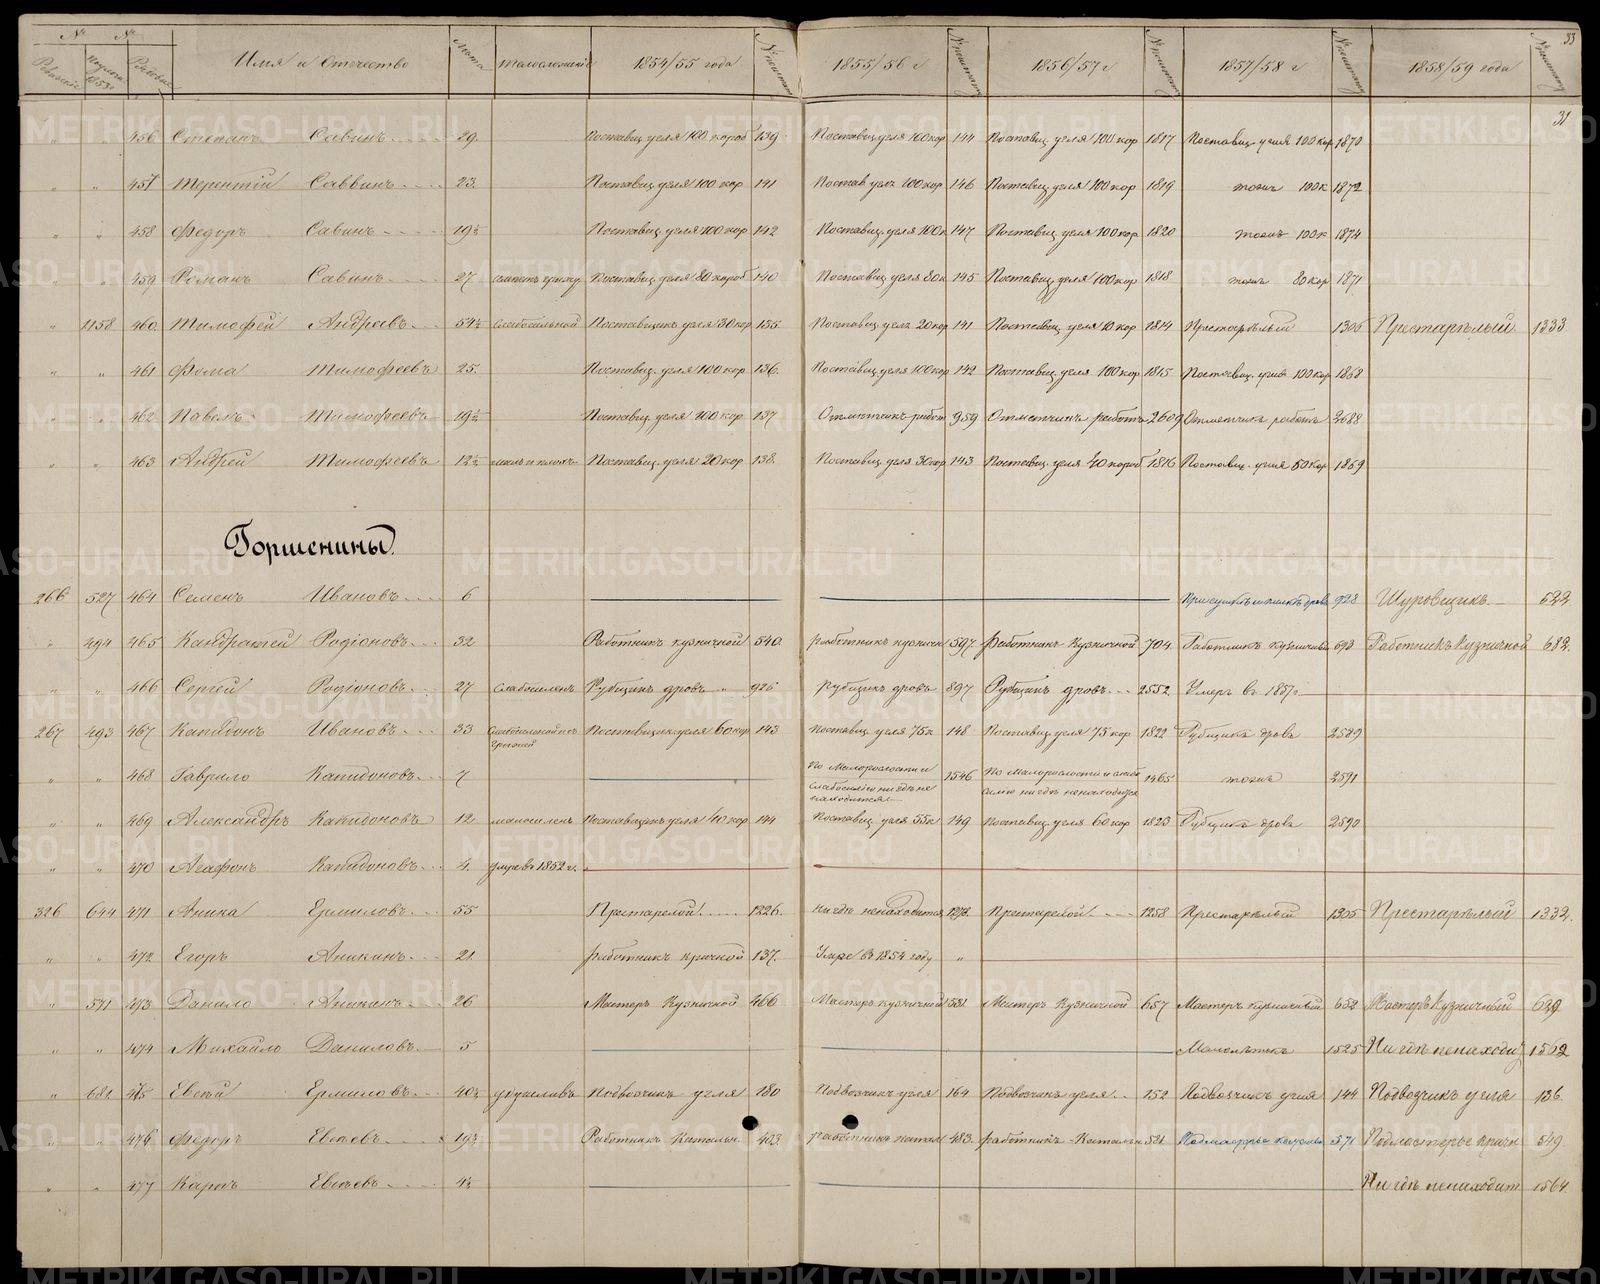 № № Имя и Отчество Лѣта Телосложеніе 1854/55 года № поштату 1855/56 г № поштату 1856/57 г № поштату 1857/58 г № поштату 1858/59 года № поштату 33
Ревизскіе Рядовые
31
" " 456 Степанъ Савинъ 29. Поставщ угля 100 короб 139 Поставщ. угля 100 кор 144 Поставщ угля 100 кор 1817 Поставщ. угля 100 кор 1870
" " 457 Терентій Саввинъ 23. Поставщ угля 100 кор 141 Постав угля 100 кор 146 Поставщ угля 100 кор 1819 тожъ 100 к 1872
" " 458 Федоръ Савинъ 19½ Поставщ угля 100 кор 142 Поставщ. угля 100 к 147 Поставщ. угля 100 кор 1820 тожъ 100 к 1874
" " 459 Романъ Савинъ 27 Поставщ угля 80 короб 140 Поставщ угля 80 к 145 Поставщ угля 100 кор 1818 тожъ 80 кор 1871
" 1158 460 Тимофей Андреевъ 54½ слабосильной Поставщикъ угля 30 кор 135 Поставщ. угля 20 кор 141 Поставщ угля 10 кор 1814 Престарѣлый 1306 Престарѣлый 1333
" " 461 Фома Тимофеевъ 25. Поставщ. угля 100 кор 136. Поставщ. угля 100 кор 142 Поставщ угля 100 кор 1815 Поставщ. угля 100 кор 1868
" " 462 Павелъ Тимофеевъ 19½ Поставщ угля 100 кор 137 Отметчикъ работ 959 Отметчикъ работъ 2609 Отметчикъ работъ 2688
" " 463 Андрей Тимофеевъ 12½ Поставщ. угля 20 кор 138. Поставщ угля 30 кор 143 Поставщ. угля 40 короб 1816 Поставщ. угля 50 кор 1869
Горшенины.
266 527 464 Семенъ Ивановъ 6 928 Шуровщикъ 622
" 494 465 Кандратей Родіоновъ 32 Работникъ кузничной 540. Работникъ кузничн 597 Работникъ Кузничной 704. Работникъ кузничный 693 Работникъ Кузничной 682.
" " 466 Сергей Родіоновъ 27 Слабосиленъ Рубщикъ дровъ " 926 Рубщикъ дровъ 897 Рубщикъ дровъ 2552 Умеръ въ 1857 г.
267 493 467 Капидонъ Ивановъ 33 Слабосильной съ грыжей Поставщикъ угля 60 кор 143 Поставщ угля 75 к 148 Поставщ угля 75 кор 1822 Рубщикъ дровъ 2589
" " 468 Гаврило Капидоновъ 7 По Малорослости и слабосилію нигдѣ не находится 1546 По Малорослости и слабосилію нигдѣ ненаходится 1465 тожъ 2591
" " 469 Александръ Капидоновъ 12 малосиленъ Поставщикъ угля 40 кор 144 Поставщ угля 55 к 149 Поставщ. угля 60 кор 1823 Рубщикъ дровъ 2590
" " 470 Агафонъ Капидоновъ 4. умре въ 1852 г.
326 644 471 Аника Ермиловъ 55 Престарелой 1226. Нигдѣ ненаходится 1278. Престарелой 1258 Престарѣлый 1305 Престарѣлый 1332.
" " 472 Егоръ Аникинъ 21. Работникъ кричной 137. Умре въ 1854 году "
" 571 473 Данило Аникинъ 26 Мастеръ Кузничной 466 Мастеръ кузничной 531 Мастеръ Кузничной 657 Мастеръ кузничный 632 Мастеръ Кузничный 629
" " 474 Михайло Даниловъ 5 Малолѣтокъ 1525 Ни гдѣ ненаходи 1562
" 681. 475 Евсѣй Ермиловъ 40½ Подвозчикъ угля 180 Подвозчикъ угля 164 Подвозчикъ угля 152 Подвозчикъ угля 144 Подвозчикъ угля 136.
" " 476 Федоръ Евсѣевъ 19½ Работникъ Катальн. 403. Работникъ катал 483. Работникъ Катальн 531 571 Подмастерье кричн 549
" " 477 Карпъ Евсѣевъ Ни гдѣ ненаходит 1564.
METRIKI.GASO-URAL.RU